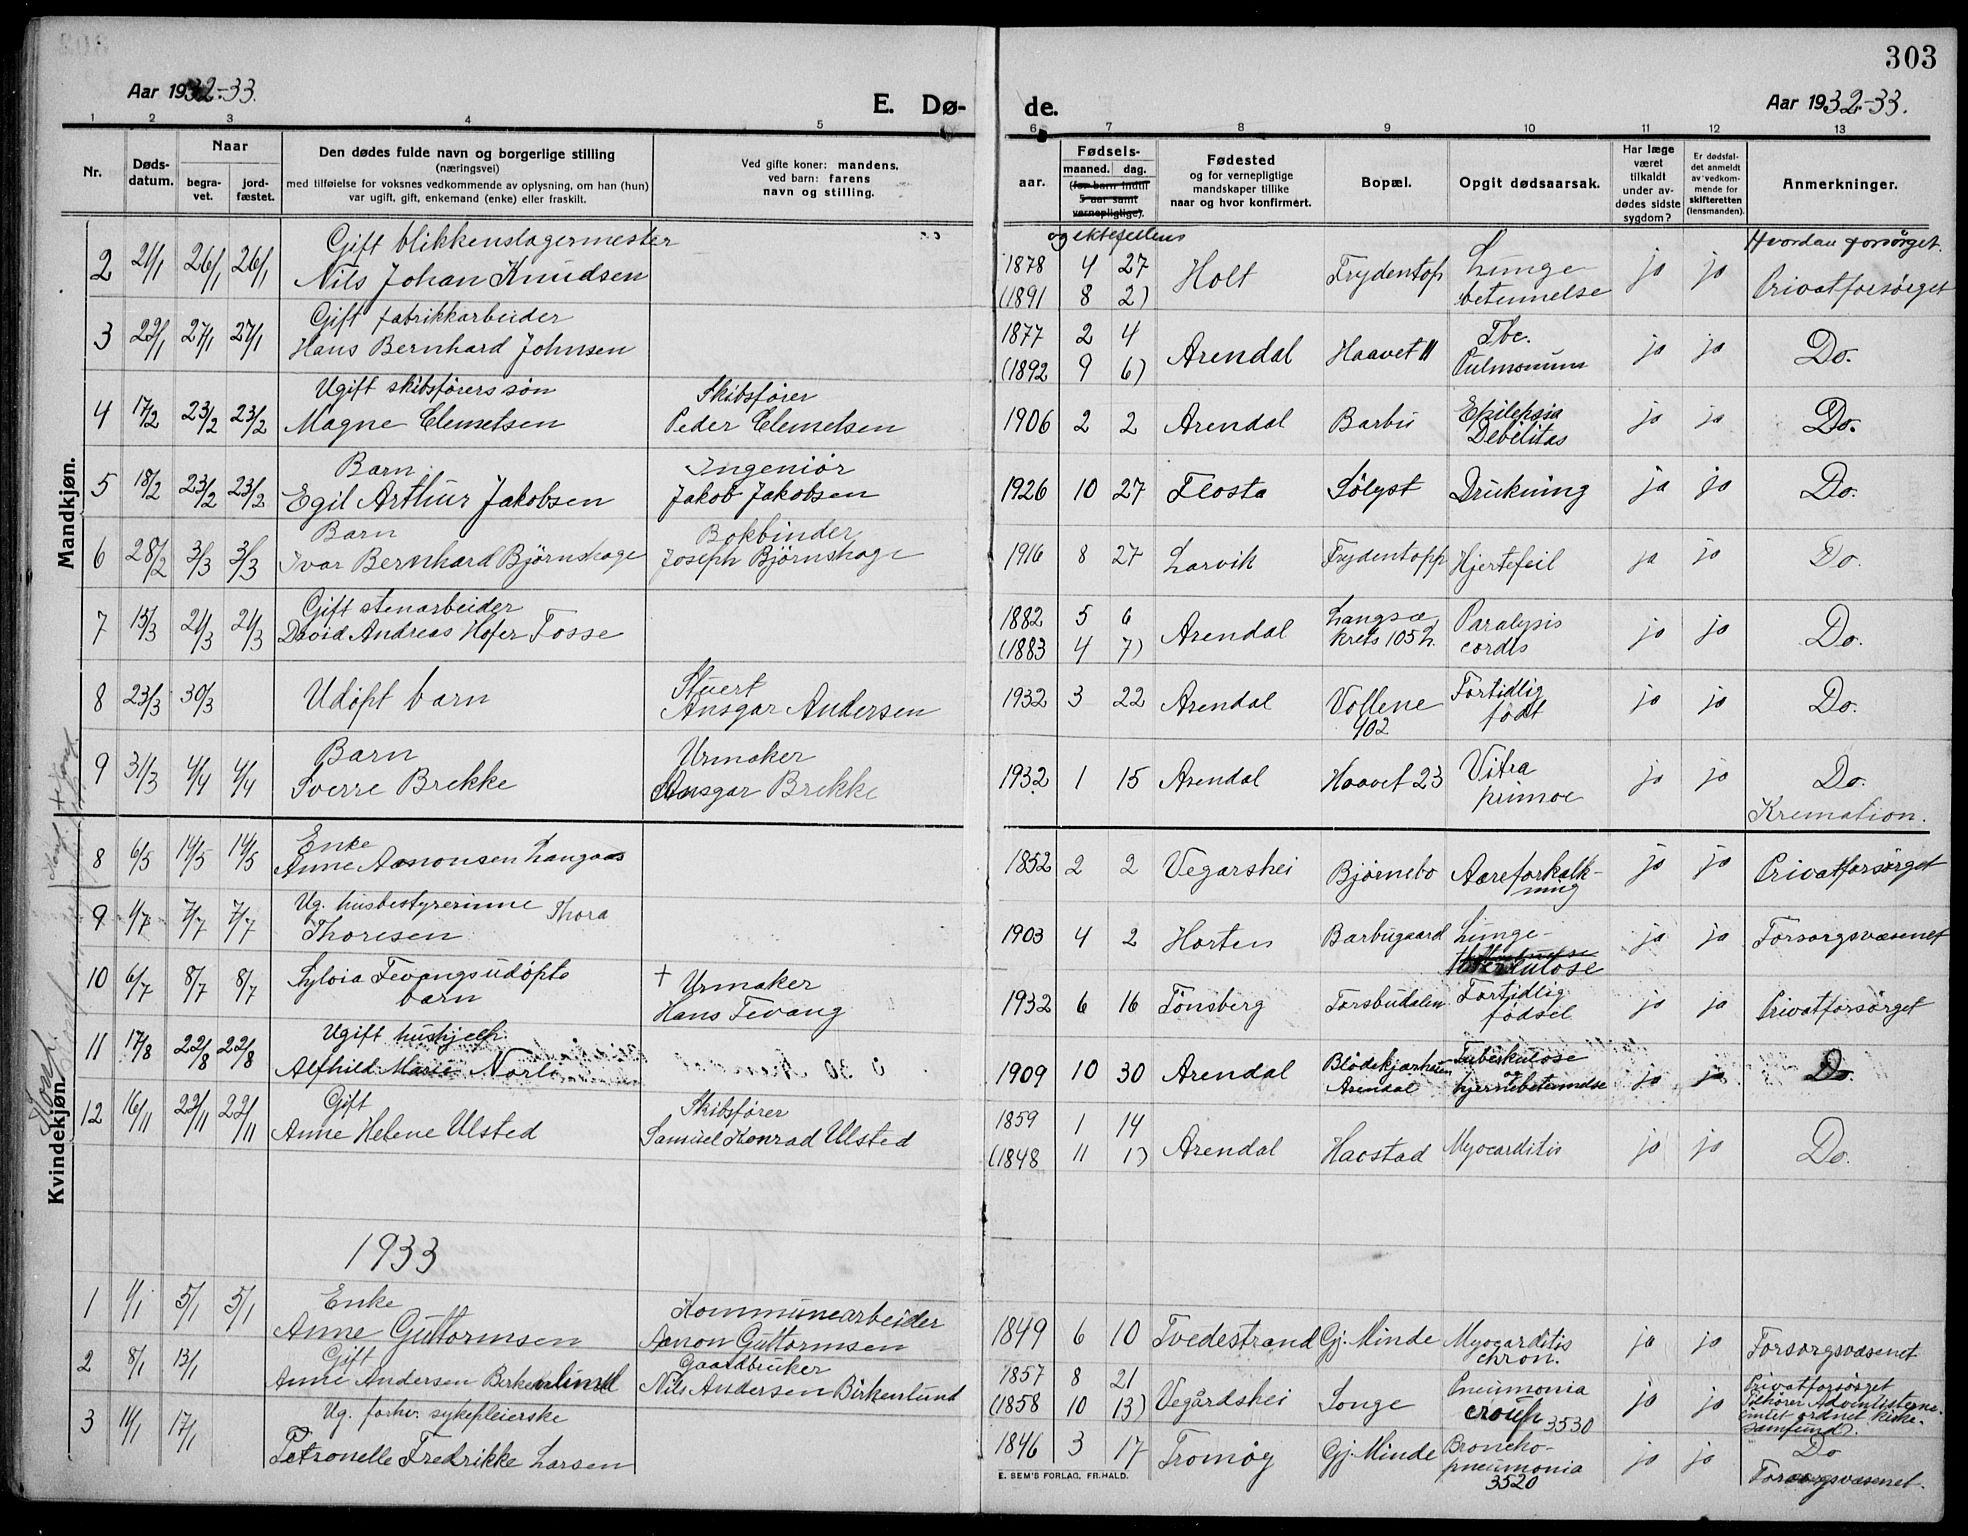 303
Aar 1932-33.
E. Dø-
de.
Aar 1932-33.
1 2 3 4 5 6 7 8 9 10 11 12 13
Nr.
Døds-
datum.
Naar
begra-
vet.
jord-
fæstet.
Den dødes fulde navn og borgerlige stilling
(næringsvei)
med tilføielse for voksnes vedkommende av oplysning, om han (hun)
var ugift, gift, enkemand (enke) eller fraskilt.
Ved gifte koner: mandens.
ved barn: farens
navn og stilling.
Fødsels-
aar.
maaned. dag.
(for barn indtil
5 aar samt
vernepligtige).
og ektefellens
Fødested
og for vernepligtige
mandskaper tillike
naar og hvor konfirmert.
Bopæl.
Opgit dødsaarsak.
Har læge
været
tilkaldt
under av-
dødes sidste
sygdom?
Er dødsfal-
det anmeldt
av vedkom-
mende for
skifteretten
(lensmanden).
Anmerkninger.
Hvordan forsørget.
Mandkjøn.
2 21/1 26/1 26/1 Gift blikkenslagermester
Nils Johan Knudsen
1878 4 27
(1891 8 2)
Holt Frydentop Lunge-
betennelse ja ja Privatforsørget
3 22/1 27/1 27/1 Gift fabrikkarbeider
Hans Bernhard Johnsen
1877 2 4
(1892 9 6)
Arendal Haavet 11 Tbc.
Pulmonum ja ja Do.
4 17/2 23/2 23/2 Ugift skibsførers søn
Magne Clemetsen
Skibsfører
Peder Clemetsen
1906 2 2 Arendal Barbu Epilepsia
Debilitas ja ja Do.
5 18/2 23/2 23/2 Barn
Egil Arthur Jakobsen
Ingeniør
Jakob Jakobsen
1926 10 27 Flosta Sølyst Drukning ja ja Do.
6 28/2 3/3 3/3 Barn
Ivar Bernhard Bjørnshage
Bokbinder
Joseph Bjørnshage
1916 8 27 Larvik Frydentopp Hjertefeil ja ja Do.
7 15/3 21/3 21/3 Gift stenarbeider
David Andreas Hofer Fosse
1882 5 6
(1883 4 7)
Arendal Langsæ
krets 105 h. Paralysis
cordis ja ja Do.
8 23/3 30/3 Udøpt barn
Stuert
Ansgar Andersen
1932 3 22 Arendal Vollene
402 Fortidlig
født ja ja Do.
9 31/3 4/4 4/4 Barn
Sverre Brekke
Urmaker
Ansgar Brekke
1932 1 15 Arendal Haavet 23 Vitra
primae ja ja Do.
Kremation.
Kvindekjøn.
8 6/5 14/5 14/5 Enke
Anne Aanonsen Langaas
1852 2 2 Vegarshei Bjørnebo Aareforkalk-
ning ja ja Privatforsørget
9 1/7 7/7 7/7 Ug. husbestyrerinne Thora
Thoresen
1903 4 2 Horten Barbugaard Lunge-
tuberkulose ja ja Forsorgsvæsenet
10 6/7 8/7 8/7 Sylvia Tevangs udøpte
barn
+ Urmaker
Hans Tevang
1932 6 16 Tønsberg Torsbudalen Fortidlig
fødsel ja ja Privatforsørget
11 17/8 22/8 22/8 Ugift hushjelp
Alfhild Marie Norli
1909 10 30 Arendal Blødekjærheien
Arendal Tuberkuløse
og
hjernebetennelse ja ja Do.
12 16/11 22/11 22/11 Gift
Anne Helene Ulsted
Skibsfører
Samuel Konrad Ulsted
1859 1 14
(1848 11 1)
Arendal Hastad Myocarditis ja ja Do.
1933
1 1/1 5/1 5/1 Enke
Anne Guttormsen
Kommunearbeider
Aanon Guttormsen
1849 6 10 Tvedestrand Gj. Minde Myocarditis
chron. ja ja Forsorgsvæsenet
2 8/1 13/1 Gift
Anne Andersen Birkenlund
Gaardbruker
Nils Andersen Birkenlund
1857 8 21
(1858 10 13)
Vegårdshei Songe Pneumonia
croup 3530 ja ja Privatforsørget
Tilhører Adventisterne
(intet ordnet kirke-
samfund).
3 11/1 17/1 Ug. forhv. sykepleierske
Petronelle Fredrikke Larsen
1846 3 17 Tromøy Gj. Minde Broncho-
pneumonia
3520 ja ja Do
Forsorgsvæsenet.
E. SEM'S FORLAG, FR.HALD.